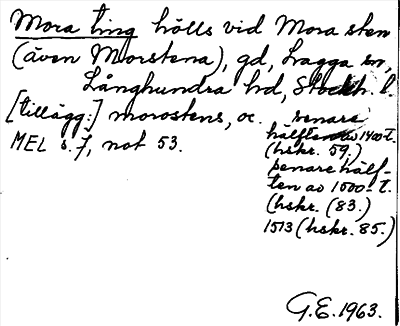 Mora ting hölls vid Mora sten
(även Morstena), gd, Lagga sn,
Långhundra hd, Stockh. l
[tillägg:] morostens, oc. senare
MEL s. 7, not 53.
hälften av 1400-t.
(hskr. 59.)
senare hälf-
ten av 1500-t.
(hskr. (83.)
1513 (hskr. 85.)
G.E. 1963.